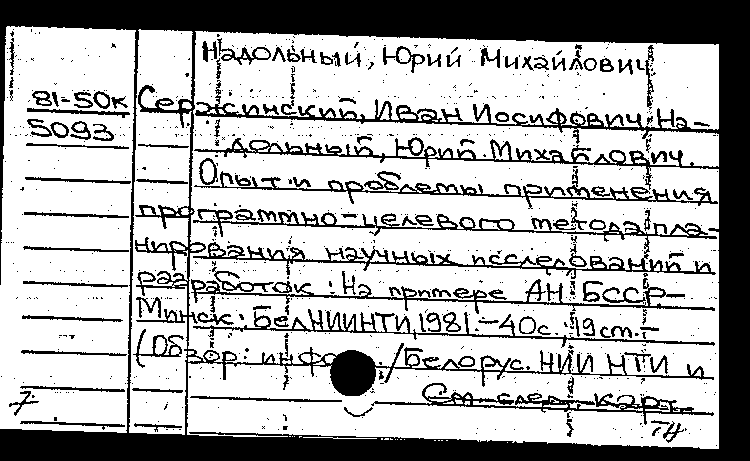 Надольный, Юрий Михайлович
81-50к Сержинский, Иван Иосифович, На-
5093 дольный, Юрий Михайлович.
Опыт и проблемы применения
программно-целевого метода пла-
нирования научных исследований и
разработок: На примере АН БССР-
Минск: БелНИИНТИ, 1981.-40с.; 19 см.-
(Обзор. информ./Белорус. НИИ НТИ и
7 См. след. карт.